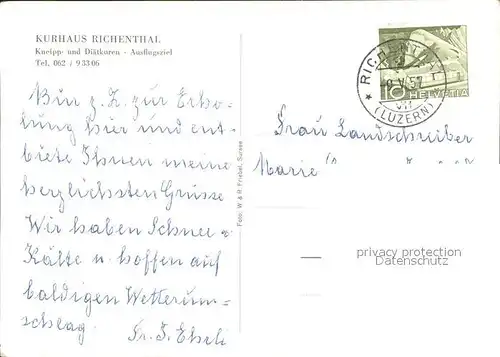 KURHAUS RICHENTHAL
Kneipp- und Diätkuren - Ausflugsziel
Tel. 062 / 9 33 06
Bin z. Z. zur Erho-
lung hier und ent-
biete Ihnen meine
herzlichsten Grüsse
Wir haben Schnee u.
Kälte u. hoffen auf
baldigen Wetterum=
schlag. Fr. J. Ehrli
Foto: W. & R. Friebel, Sursee
RICHENTHAL
V. 57
VII
(LUZERN)
10 HELVETIA
Frau Landschreiber
Marie
privacy protection
Datenschutz